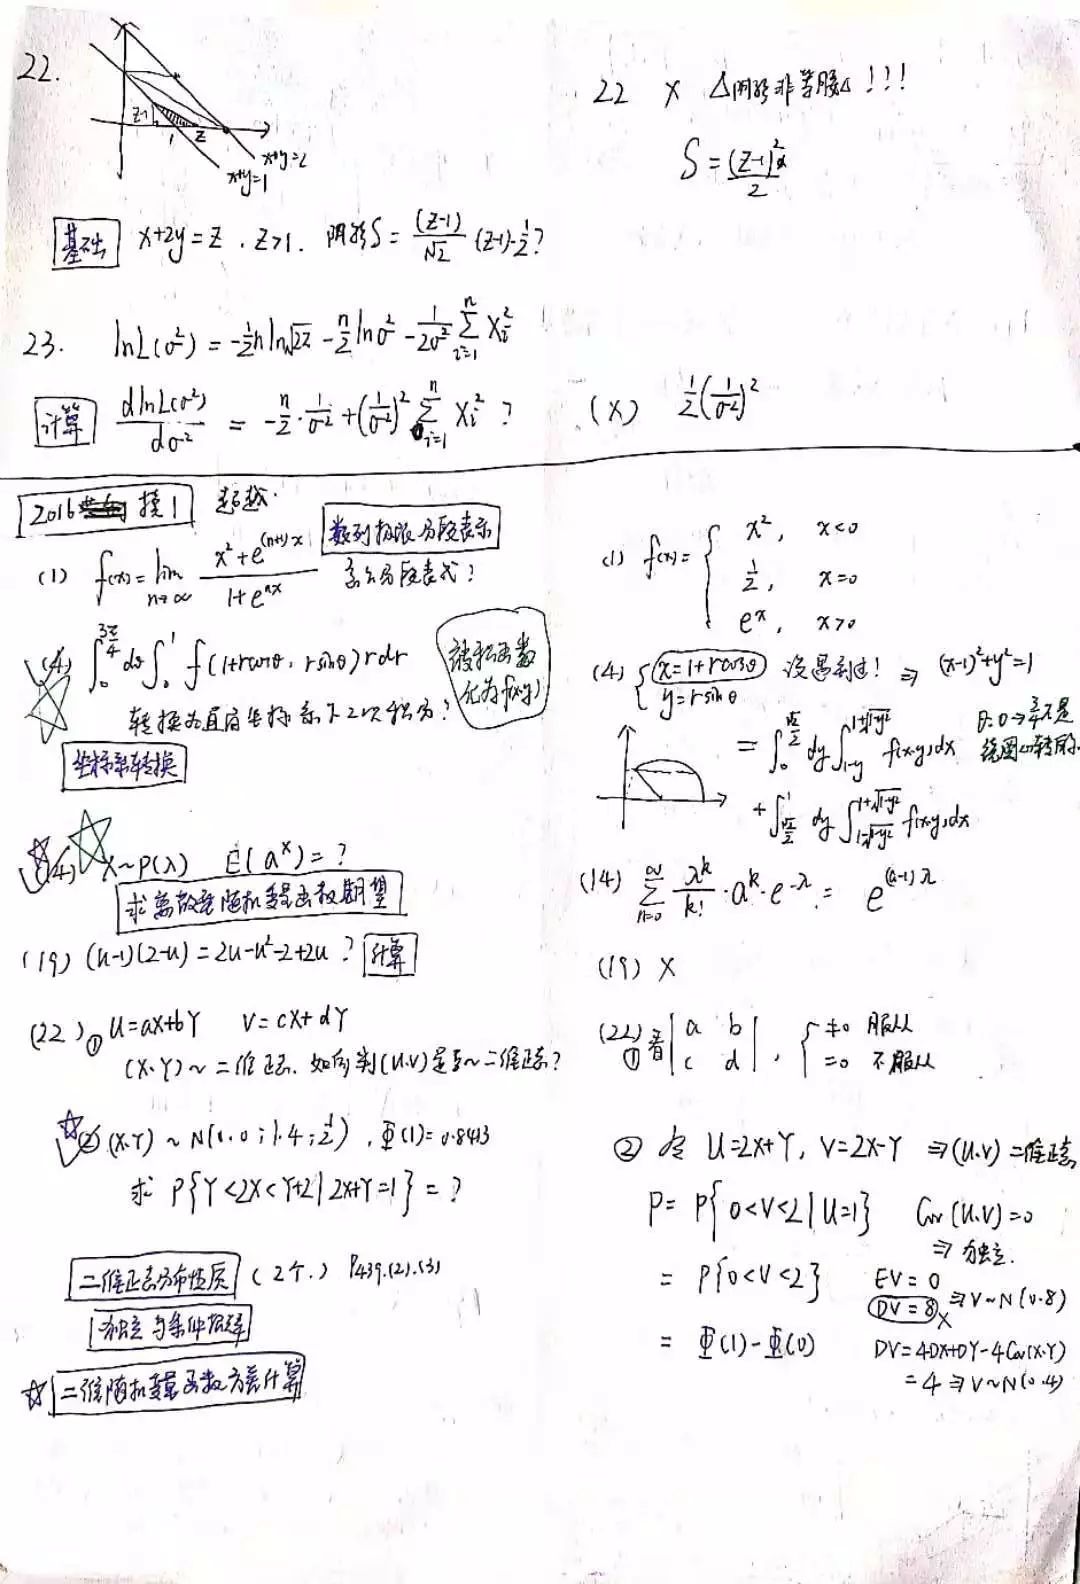 22.
Z-1
1
Z
x+y=2
x+y=1
基础 x+2y=Z , Z>1. 阴影S= (Z-1)/√2 (Z-1)·1/2?
22 × △阴影非等腰△!!!
S = (Z-1)²/2
23. lnL(σ²) = -1/2 n ln√2π - n/2 lnσ² - 1/2σ² Σ_{i=1}^{n} Xi²
计算 dlnL(σ²)/dσ² = -n/2 · 1/σ² + (1/σ²)² Σ_{i=1}^{n} Xi² ?
(×) 1/2(1/σ²)²
2016 模1 超越.
(1) f(x)=lim_{n→∞} (x²+e^{(n+1)x})/(1+e^{nx})
数列极限分段表示
怎么分段表式?
(1) f(x)= { x², x<0
1/2, x=0
e^x, x>0
(4) ∫_0^{3π/4} dθ ∫_0^1 f(1+rcosθ, rsinθ) rdr
转换为直角坐标系下二次积分?
被积函数
化为f(x,y)
坐标系转换
(4) { x=1+rcosθ 没遇到过! ⇒ (x-1)²+y²=1
y=rsinθ
= ∫_0^{√2/2} dy ∫_{1-y}^{1+√1-y²} f(x,y)dx
θ:0→3π/4是
绕圆心转的.
+ ∫_{√2/2}^1 dy ∫_{1-√1-y²}^{1+√1-y²} f(x,y)dx
(14) X~P(λ) E(a^X)=?
求离散型随机变量函数期望
(14) Σ_{n=0}^{∞} λ^k/k! · a^k · e^{-λ} = e^{(a-1)λ}
(19) (u-1)(2-u)=2u-u²-2+2u? 计算
(19) ×
(22) ① U=aX+bY V=cX+dY
(X,Y)~二维正态. 如何判(U,V)是否~二维正态?
(22) ① 看 |a b; c d| , { ≠0 服从
=0 不服从
② (X,Y)~N(0,0;1,4;1/2), Φ(1)=0.8413
求 P{Y<2X<Y+2|2X+Y=1}=?
② 令 U=2X+Y, V=2X-Y ⇒(U,V)二维正态
P= P{0<V<2|U=1} Cov(U,V)=0
⇒ 独立.
= P{0<V<2} EV=0
DV=8 × ⇒V~N(0,8)
= Φ(1)-Φ(0) DV=4DX+DY-4Cov(X,Y)
=4 ⇒V~N(0,4)
二维正态分布性质 (2个.) P439.(2).(3)
独立与条件概率
☆ 二维随机变量函数方差计算